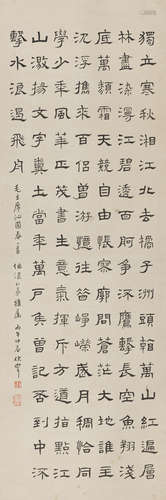 獨立寒秋湘江北去橘子洲頭看萬山紅遍層
林盡染漫江碧透百舸爭流鷹擊長空魚翔淺
底萬類霜天競自由悵寥廓問蒼茫大地誰主
沈浮攜來百侶曾遊憶往昔崢嶸歲月稠恰同
學少年風華正茂書生意氣揮斥方遒指點江
山激揚文字糞土當年萬戶侯曾記否到中流
擊水浪遏飛舟
毛主席沁園春一首